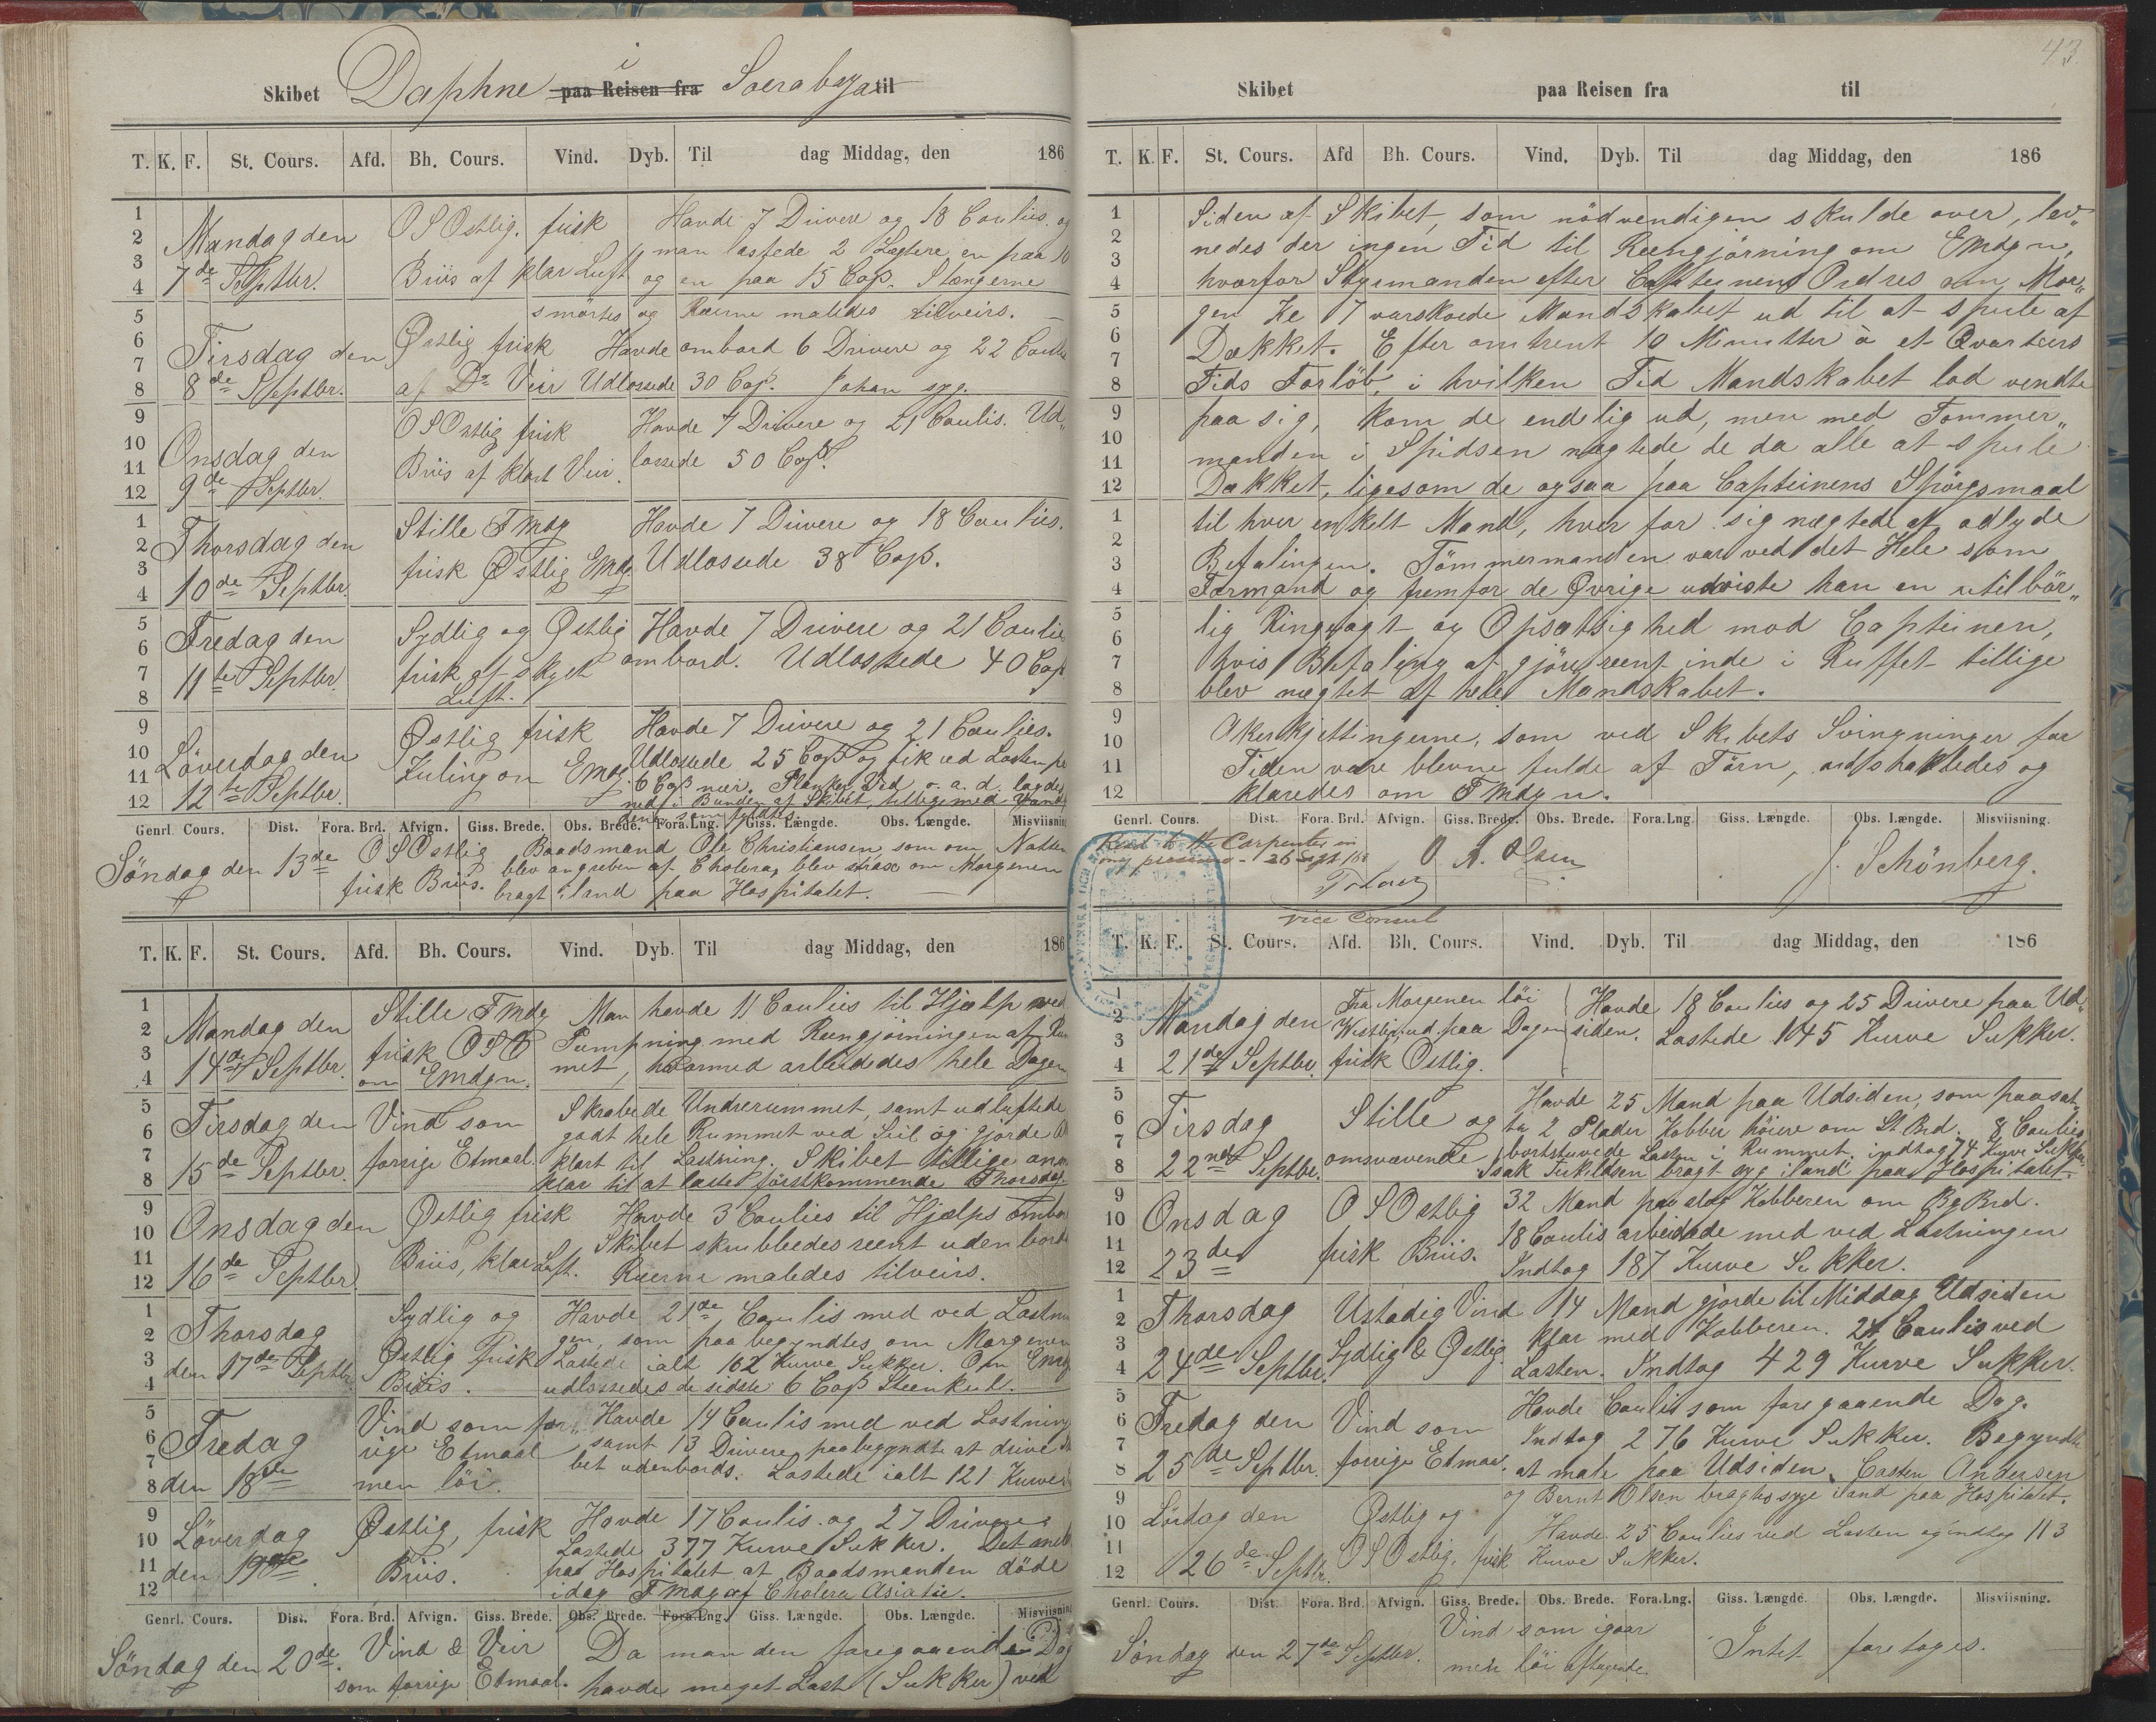 43
Skibet Daphne i paa Reisen fra Soerabaya til
T. K. F. St. Cours. Afd. Bh. Cours. Vind. Dyb. Til dag Middag, den 186
1 2 3 4 5 6 7 8 9 10 11 12
Mandag den
7de Septbr.
OSOstlig. frisk
Briis af klar Luft
Havde 7 Drivere og 18 Coulies og
man lossede 2 Lægtere, en paa 10
og en paa 15 Cojs. Stængerne
smörtes og Raaerne maledes tilveirs.
Tirsdag den
8de Septbr.
Østlig frisk
af Do Veir
Havde ombord 6 Drivere og 22 Coulies
Udlossede 30 Cojs. Johan syg.
Onsdag den
9de Septbr.
OSOstlig frisk
Briis af klart Veir.
Havde 7 Drivere og 21 Coulis. Ud„
lossede 50 Cojs.
1 2 3 4 5 6 7 8 9 10 11 12
Thorsdag den
10de Septbr.
Stille Fmdg
frisk Østlig Emdg.
Havde 7 Drivere og 18 Coulies.
Udlossede 38 Cojs.
Fredag den
11te Septbr.
Sydlig og Østlig
frisk af skyet
Luft.
Havde 7 Drivere og 21 Coulies
ombord. Udlossede 40 Cojs
Löverdag den
12te Septbr.
Østlig frisk
Kuling om Emdg.
Havde 7 Drivere og 21 Coulies.
Udlossede 25 Cojs og fik ud Lasten
6 Cojs nær. Planker, Ved o. a. d. lagdes
ned i Bunden af Skibet, tilligemed Vand
dene som fyldtes.
Genrl. Cours. Dist. Fora. Brd. Afvign. Giss. Brede. Obs. Brede. Fora.Lng. Giss. Længde. Obs. Længde. Misviisning
Söndag den 13de
OSOstlig
frisk Briis.
Baadsmand Ole Christiansen som om Natten
blev angreben af Cholera, blev strax om Morgenen
bragt iland paa Hospitalet.
T. K. F. St. Cours. Afd. Bh. Cours. Vind. Dyb. Til dag Middag, den 186
1 2 3 4 5 6 7 8 9 10 11 12
Mandag den
14de Septbr.
Stille Fmdg
frisk OSO
om Emdgn.
Man havde 11 Coulies til Hjælp med
Pumpning med Rengjöringen af Rum
met, hvormed arbeidedes hele Dagen
Tirsdag den
15de Septbr.
Vind som
forrige Etmaal.
Skrabede Underrummet, samt udluftede
godt hele Rummet ved Seil og gjorde
klart til Lastning. Skibet tillige
klar til at laste förstkommende Thorsdag.
Onsdag den
16de Septbr.
Østlig frisk
Briis, klar Luft.
Havde 3 Coulies til Hjælps ombord
Skibet skrubbedes reent udenbords
Raaerne maledes tilveirs.
1 2 3 4 5 6 7 8 9 10 11 12
Thorsdag
den 17de Septbr.
Sydlig og
Østlig frisk
Briis.
Havde 21de Coulis med ved Lastnin
gen, som paabegyndtes om Morgenen
Lastede ialt 162 Kurve Sukker. Om Emdg
udlossedes de sidste 6 Cojs Steenkul.
Fredag
den 18de
Vind som for„
rige Etmaal
men löi.
Havde 14 Coulis med ved Lastning
samt 13 Drivere, paabegyndte at drive
bet udenbords. Lastede ialt 121 Kurve
Löverdag
den 19de
Østlig, frisk
Briis.
Havde 17 Coulis. og 27 Drivere.
Lastede 377 Kurve Sukker. Det
paa Hospitalet at Baadsmanden döde
idag Fmdg af Cholera Asiatic.
Genrl. Cours. Dist. Fora. Brd. Afvign. Giss. Brede. Obs. Brede. Fora.Lng. Giss. Længde. Obs. Længde. Misviisning
Söndag den 20de.
Vind & Veir
som forrige Etmaal.
Da man den foregaaende Dag
havde meget Last (Sukker) ved
Skibet paa Reisen fra til
T. K. F. St. Cours. Afd Bh. Cours. Vind. Dyb. Til dag Middag, den 186
1 2 3 4 5 6 7 8 9 10 11 12
Siden af Skibet, som nödvendigen skulde over, lev„
nedes der ingen Tid til Reengjörning om Emdgn,
hvorfor Styrmanden efter Capteinens Ordres om Mor„
gen Kl 7 varskoede Mandskabet ud til at spule af
Dækket. Efter omtrent 10 Minutter à et Qvarteers
Tids Forlöb, i hvilken Tid Mandskabet lod vendte
paa sig, kom de endelig ud, men med Tömmer„
manden i Spidsen nægtede de da alle at spule
Dækket, ligesom de ogsaa paa Capteinens Spörgsmaal
1 2 3 4 5 6 7 8 9 10 11 12
til hver enkelt Mand, hver for sig nægtede at adlyde
Befalingen. Tömmermanden var ved det Hele som
Formand og fremfor de Øvrige udviste han en utilbör„
lig Ringeagt og Opsætsighed mod Capteinen,
hvis Befaling at gjöre reent inde i Ruffet tillige
blev nægtet af hele Mandskabet.
Akerkjettingerne, som ved Skibets Svingninger for
Tiden vare blevne fulde af Törn, udshakledes og
klaredes om Fmdgn.
Genrl. Cours. Dist. Fora. Brd. Afvign. Giss. Brede. Obs. Brede. Fora.Lng. Giss. Længde. Obs. Længde. Misviisning.
Read to the Carpenter in
my presence - 26 Sept
Vice Consul
O. A. Olsen
J. Schönberg.
T. K. F. St. Cours. Afd. Bh. Cours. Vind. Dyb. Til dag Middag, den 186
1 2 3 4 5 6 7 8 9 10 11 12
Mandag den
21de Septbr.
Fra Morgenen löi
Westlig, ud paa Dagen
frisk Ostlig.
Havde 18 Coulies og 25 Drivere paa Ud„
siden. Lastede 145 Kurve Sukker.
Tirsdag
22nde Septbr.
Stille og
omsvævende
Havde 25 Mand paa Udsiden, som paasat„
te 2 Plader Kobber höiere om St. Brd. 8 Coulies
bortstuvede Lasten i Rummet. indtog 74 Kurve Sukker
Isak bragt syg iland paa Hospitalet.
Onsdag
23de
OSOstlig
frisk Briis.
32 Mand paaslog Kobberen om BgBrd.
18 Coulis arbeidede med ved Lastningen
Indtog 187 Kurve Sukker.
1 2 3 4 5 6 7 8 9 10 11 12
Thorsdag
24de Septbr.
Ustadig Vind
Sydlig & Østlig.
14 Mand gjorde til Middag Udsiden
klar med Kobberen. 24 Coulis ved
Lasten. Indtog 429 Kurve Sukker.
Fredag den
25de Septbr.
Vind som
forrige Etmaal.
Havde Coulis som foregaaende Dag.
Indtog 276 Kurve Sukker. Begyndte
at male paa Udsiden. Casten Andersen
og Bernt Olsen bragtes syge iland paa Hospitalet.
Lördag den
26de Septbr.
Østlig og
OSOstlig, frisk
Havde 25 Coulies ved Lasten og indtog 113
Kurve Sukker.
Genrl. Cours. Dist. Fora. Brd. Afvign. Giss. Brede. Obs. Brede. Fora.Lng. Giss. Længde. Obs. Længde. Misviisning.
Söndag den 27de Septbr.
Vind som igaar
men löi aftagende.
Intet foretoges.